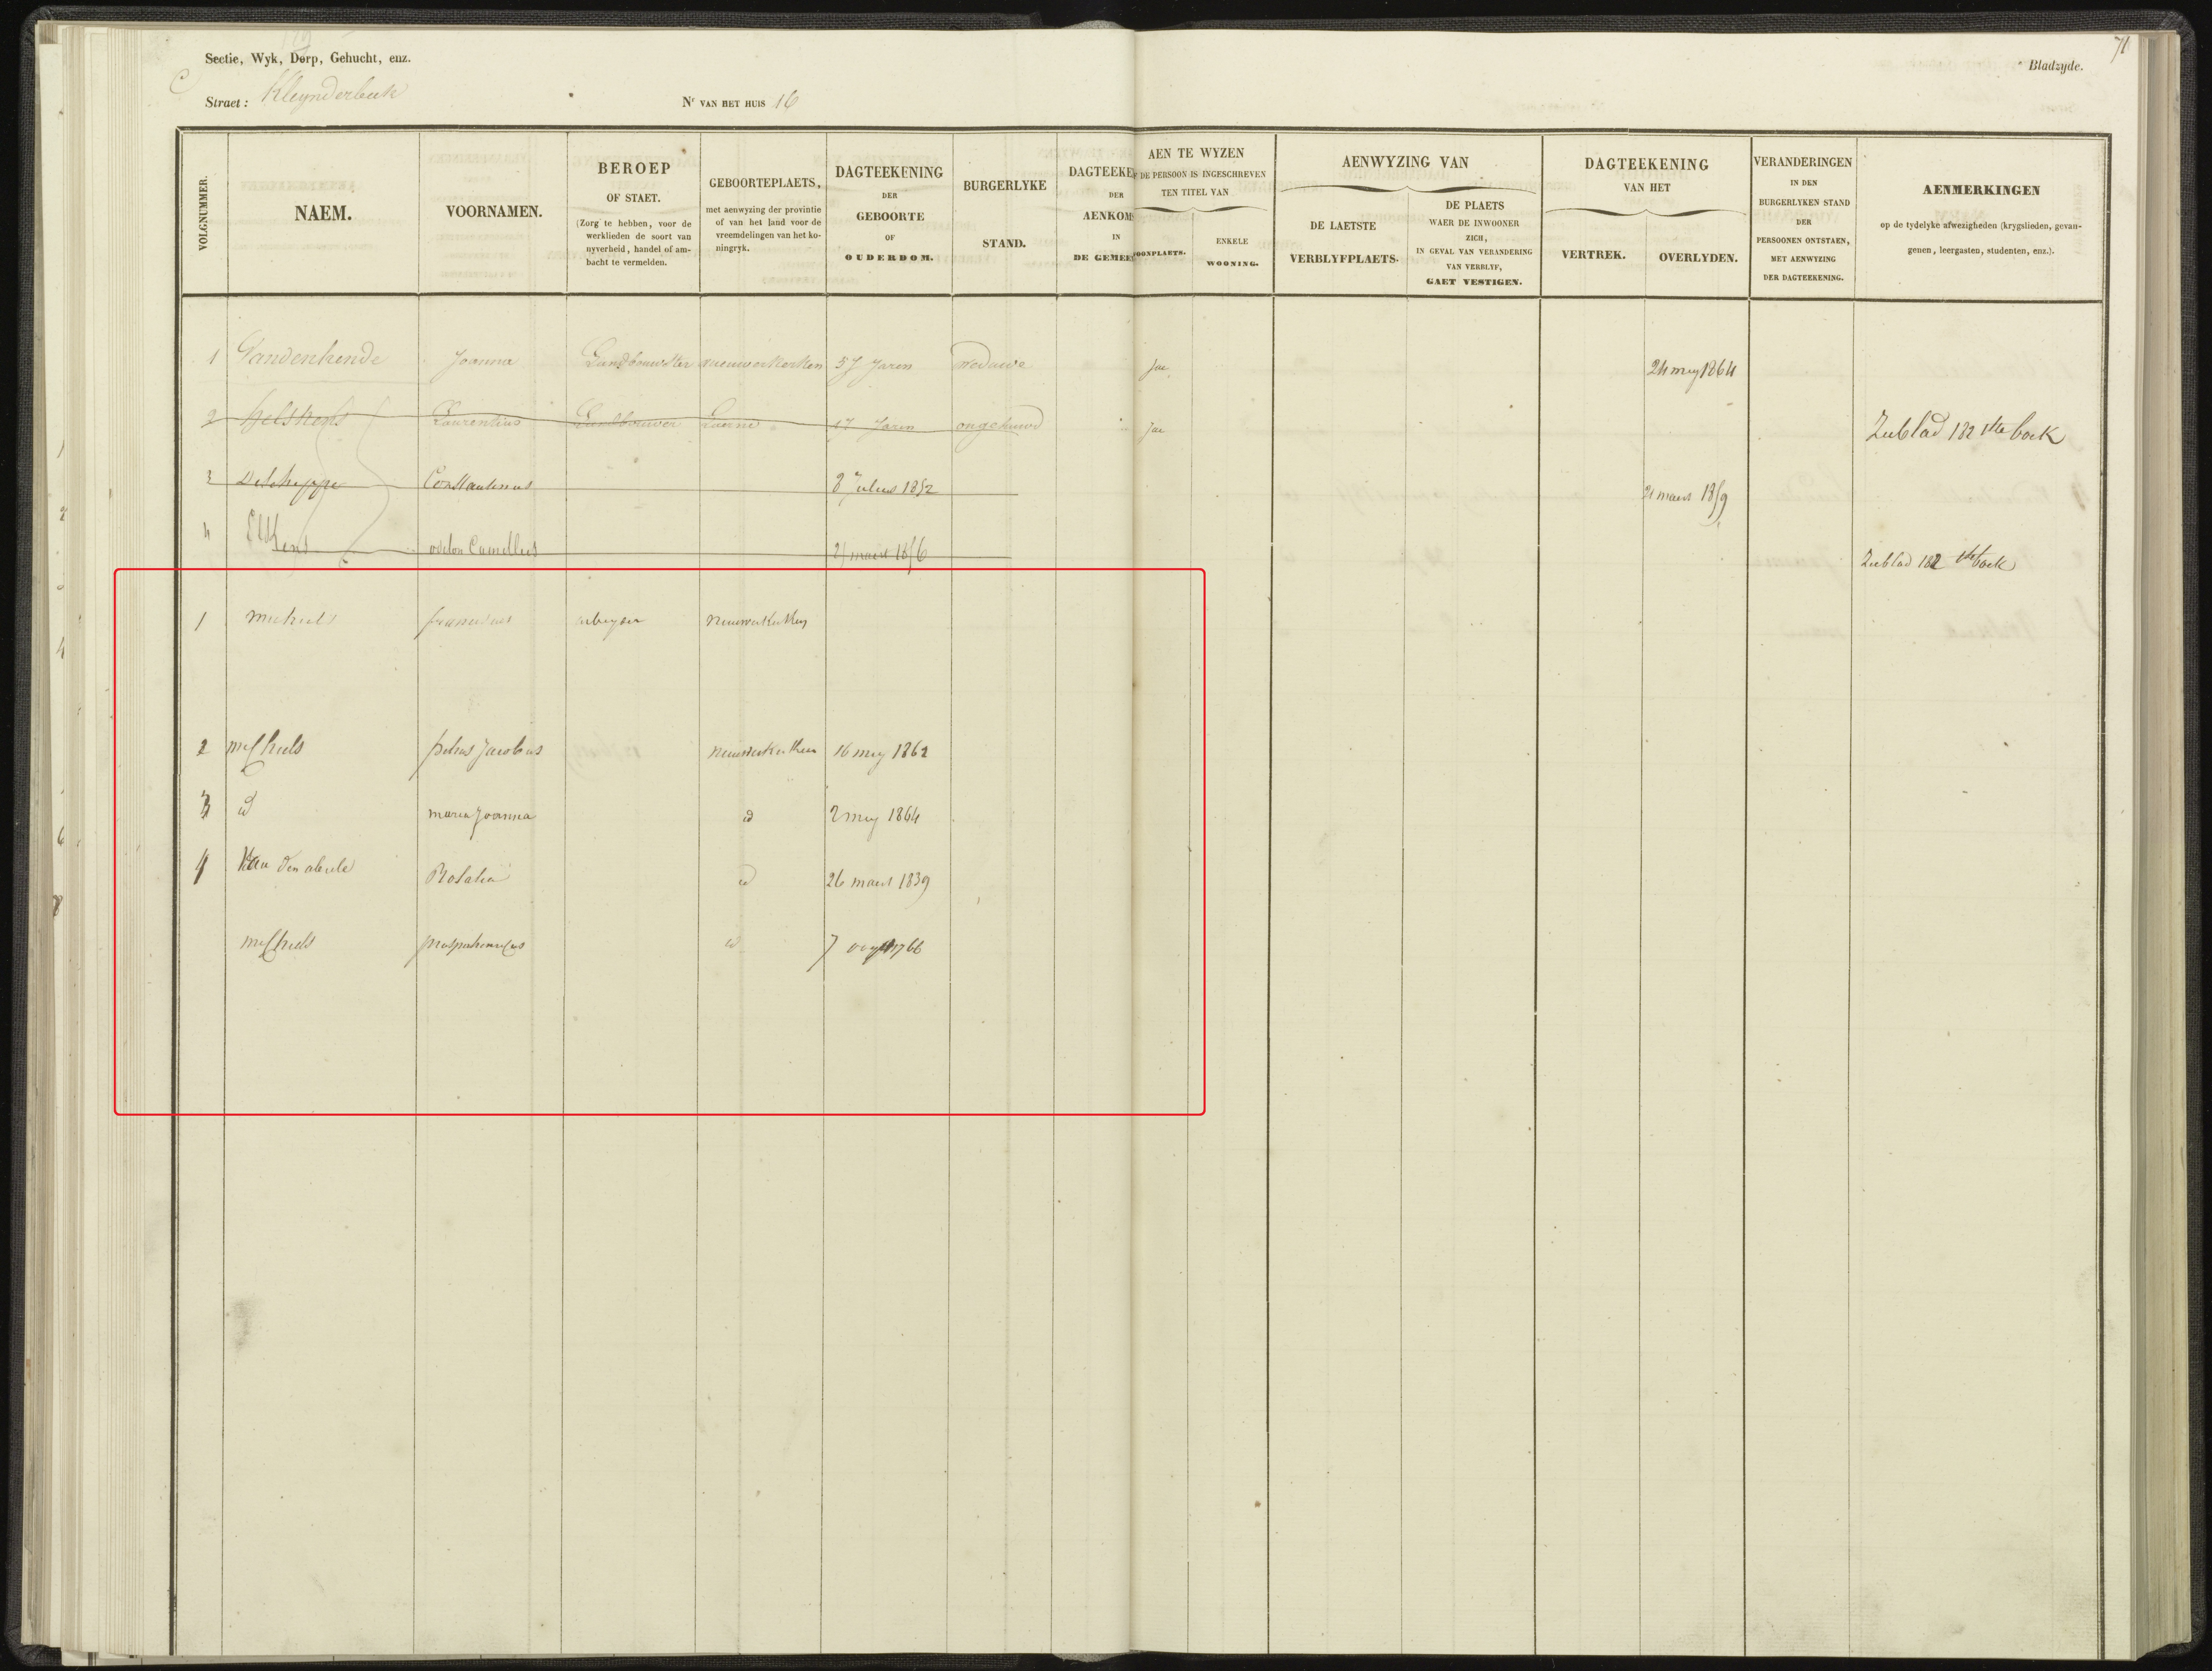 71
Sectie, Wyk, Dorp, Gehucht, enz.
C
Bladzyde.
Straet: Kleynderbeek
Nr VAN HET HUIS 16
VOLGNUMMER.
NAEM.
VOORNAMEN.
BEROEP
OF STAET.
(Zorg te hebben, voor de
werklieden de soort van
nyverheid, handel of am-
bacht te vermelden.
GEBOORTEPLAETS,
met aenwyzing der provintie
of van het land voor de
vreemdelingen van het ko-
ningryk.
DAGTEEKENING
DER
GEBOORTE
OF
OUDERDOM.
BURGERLYKE
STAND.
DAGTEEKE
DER
AENKOMS
IN
DE GEMEEN
AEN TE WYZEN
OF DE PERSOON IS INGESCHREVEN
TEN TITEL VAN
OONPLAETS.
ENKELE
WOONING.
AENWYZING VAN
DE LAETSTE
VERBLYFPLAETS.
DE PLAETS
WAER DE INWOONER
ZICH,
IN GEVAL VAN VERANDERING
VAN VERBLYF,
GAET VESTIGEN.
DAGTEEKENING
VAN HET
VERTREK.
OVERLYDEN.
VERANDERINGEN
IN DEN
BURGERLYKEN STAND
DER
PERSOONEN ONTSTAEN,
MET AENWYZING
DER DAGTEEKENING.
AENMERKINGEN
op de tydelyke afwezigheden (krygslieden, gevan-
genen, leergasten, studenten, enz.).
1 Vandenhende Joanna Landbouwster nieuwerkerken 57 Jaren weduwe Jae 24 mey 1864
2 Laurentius Landbouwer Laerne 17 Jaren ongehuwd Jae Zieblad 182 1ste boek
3 Deschepper Constantinus 8 Julius 1852 21 maert 1859
4 odilon Camillus 21 maert 1856 Zieblad 182 1ste boek
1 michiels franciscus arbeyder nieuwerkerken
2 michiels petrus Jacobus nieuwerkerken 16 mey 1862
3 id maria Joanna id 2 mey 1864
4 Van den abeele Rosalia id 26 maert 1839
michiels id 7 1766